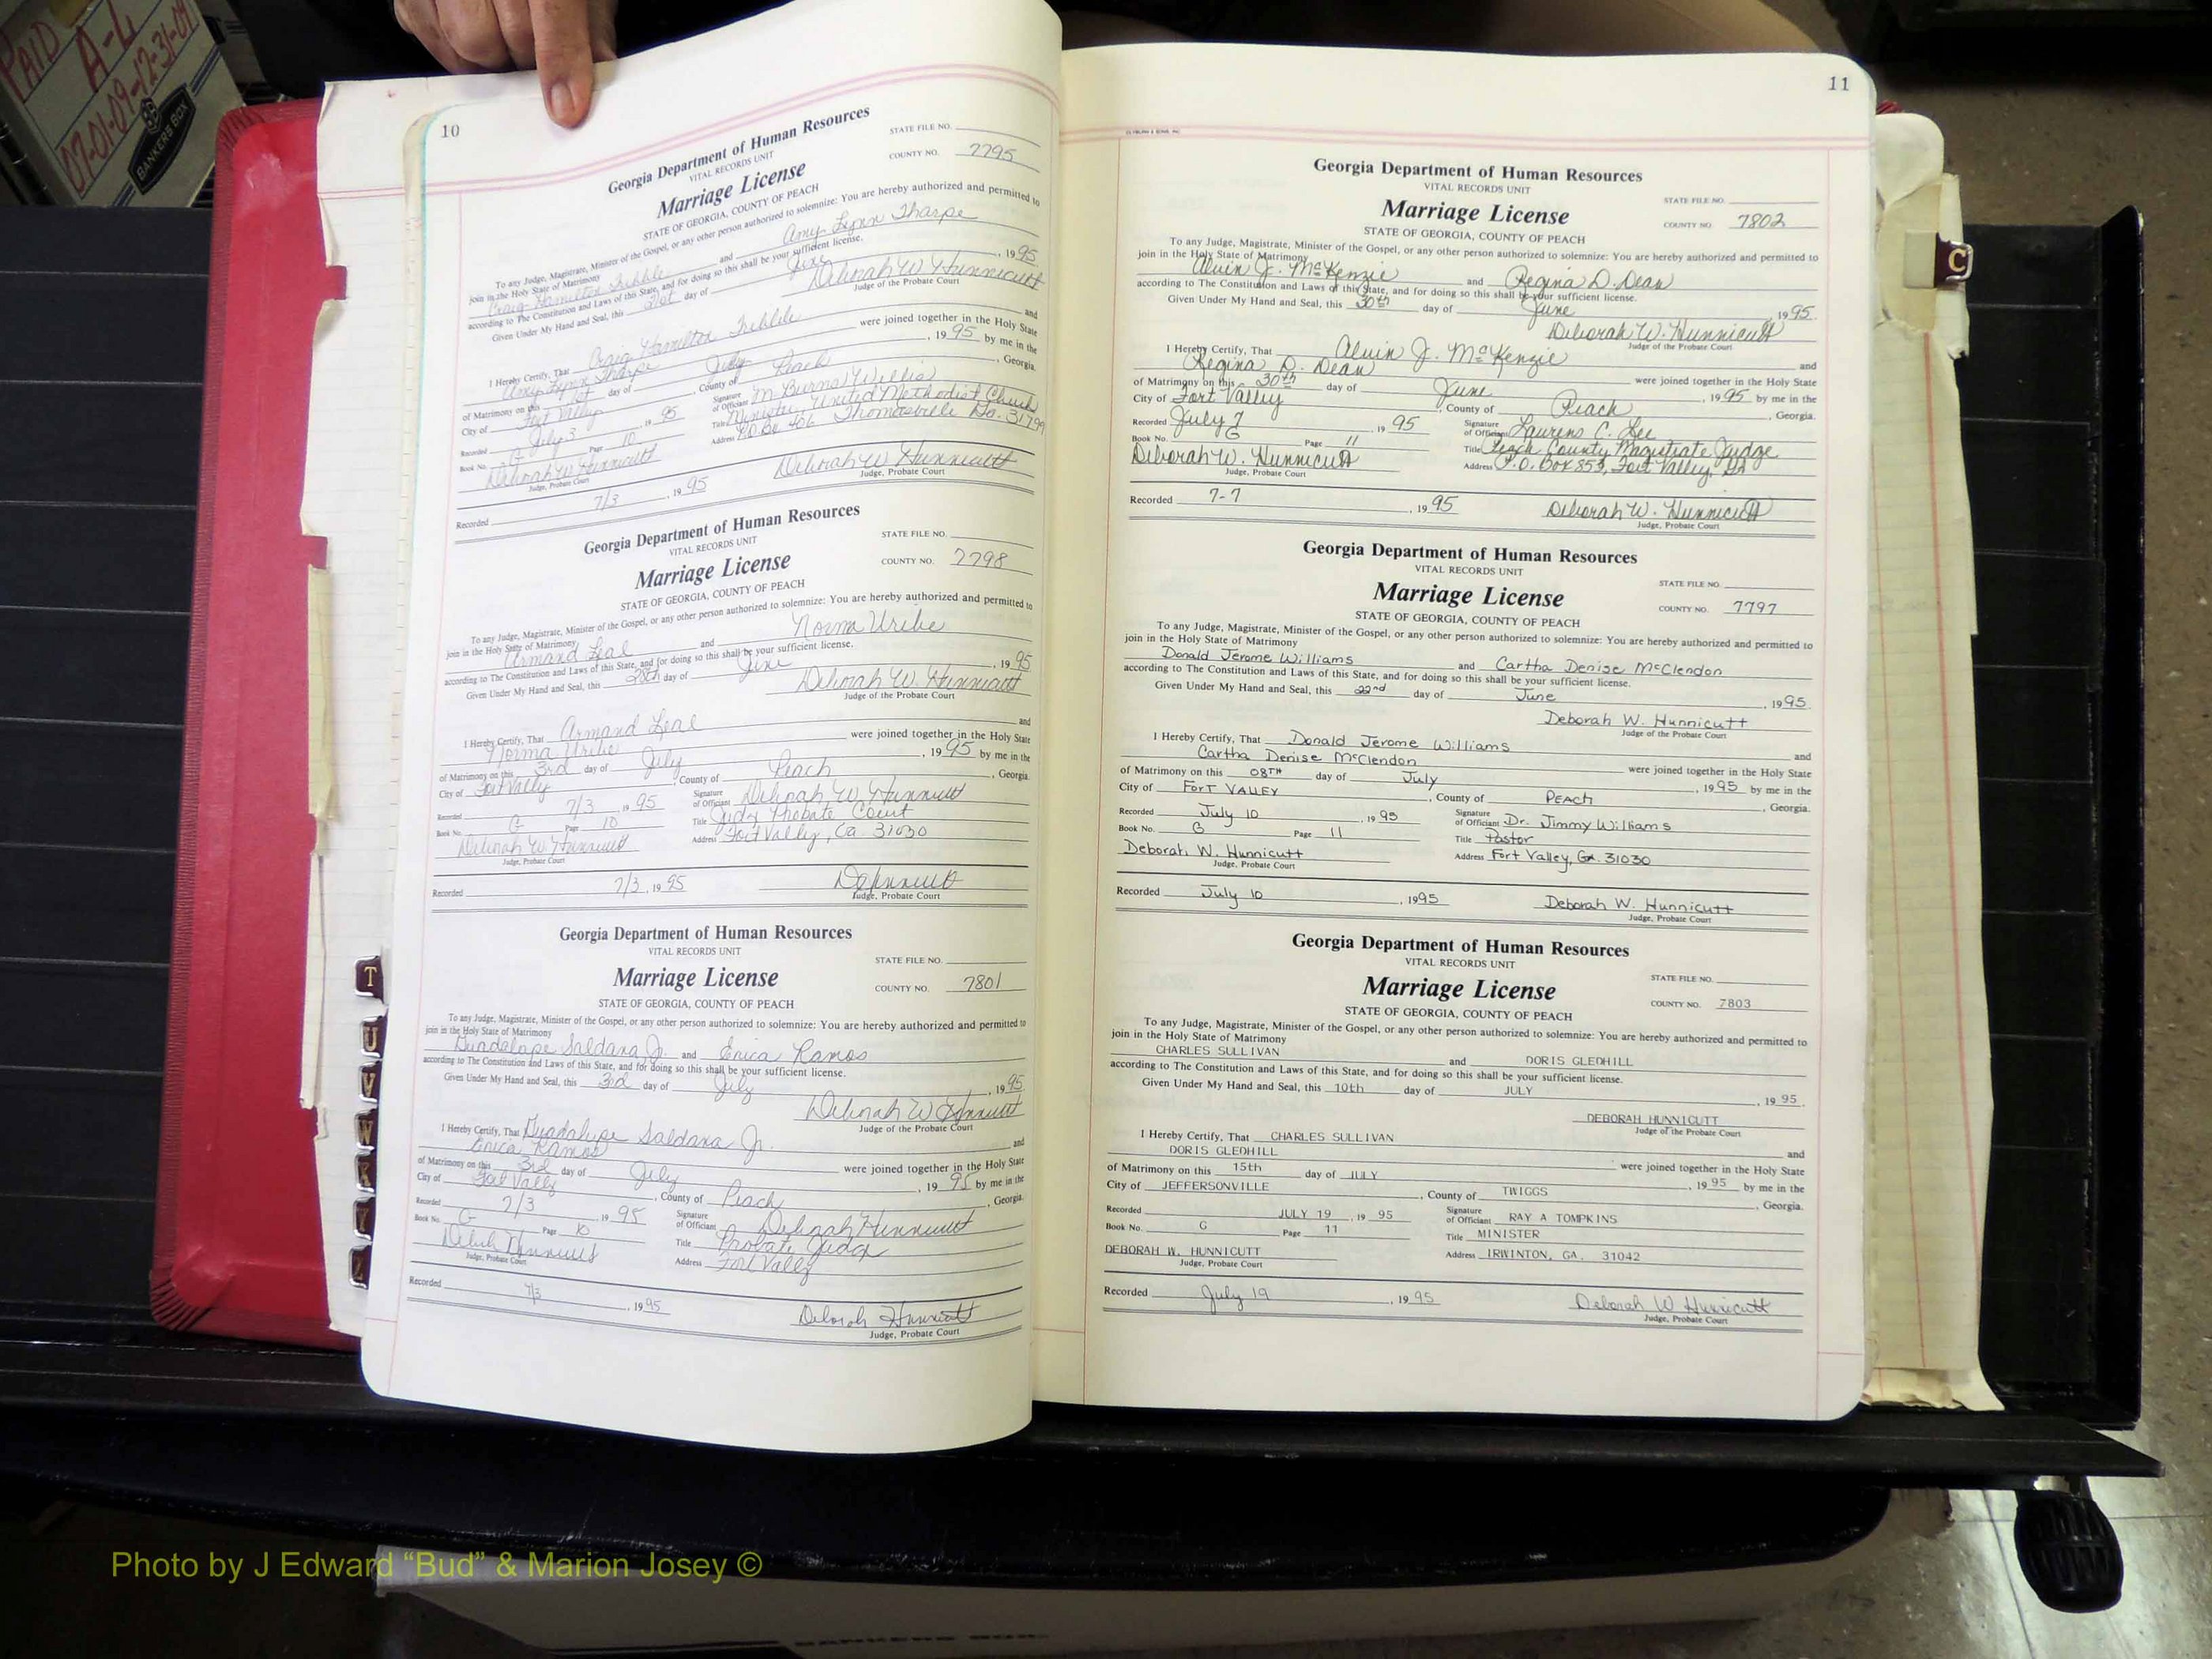 PAID
A-L
07-01-09-12-31-09
BANKERS BOX
10
Georgia Department of Human Resources
VITAL RECORDS UNIT
STATE FILE NO.
Marriage License
COUNTY NO. 7795
STATE OF GEORGIA, COUNTY OF PEACH
To any Judge, Magistrate, Minister of the Gospel, or any other person authorized to solemnize: You are hereby authorized and permitted to
join in the Holy State of Matrimony
Craig Hamilton and Amy Lynn Tharpe
according to The Constitution and Laws of this State, and for doing so this shall be your sufficient license.
Given Under My Hand and Seal, this day of June, 1995
Deborah W Hunnicutt
Judge of the Probate Court
I Hereby Certify, That Craig Hamilton and
Amy Lynn Tharpe were joined together in the Holy State
of Matrimony on this 1st day of July, 1995 by me in the
City of Fort Valley, County of Peach, Georgia.
Recorded July 3 1995 Signature of Officiant M Burns Willis
Book No. G Page 10 Title Minister, United Methodist Church
Address P.O. Box 406 Thomasville Ga. 31799
Deborah W Hunnicutt
Judge, Probate Court
Recorded 7/3, 1995 Deborah W Hunnicutt
Judge, Probate Court
Georgia Department of Human Resources
VITAL RECORDS UNIT
STATE FILE NO.
Marriage License
COUNTY NO. 7798
STATE OF GEORGIA, COUNTY OF PEACH
To any Judge, Magistrate, Minister of the Gospel, or any other person authorized to solemnize: You are hereby authorized and permitted to
join in the Holy State of Matrimony
Armand Leal and Norma Uribe
according to The Constitution and Laws of this State, and for doing so this shall be your sufficient license.
Given Under My Hand and Seal, this 28th day of June, 1995
Deborah W. Hunnicutt
Judge of the Probate Court
I Hereby Certify, That Armand Leal and
Norma Uribe were joined together in the Holy State
of Matrimony on this 3rd day of July, 1995 by me in the
City of Fort Valley, County of Peach, Georgia.
Recorded 7/3, 1995 Signature of Officiant Deborah W Hunnicutt
Book No. G Page 10 Title Judge Probate Court
Deborah W Hunnicutt Address Fort Valley, Ga 31030
Judge, Probate Court
Recorded 7/3, 1995 DHunnicutt
Judge, Probate Court
Georgia Department of Human Resources
VITAL RECORDS UNIT
STATE FILE NO.
Marriage License
COUNTY NO. 7801
STATE OF GEORGIA, COUNTY OF PEACH
To any Judge, Magistrate, Minister of the Gospel, or any other person authorized to solemnize: You are hereby authorized and permitted to
join in the Holy State of Matrimony
Guadalupe Saldana Jr. and Erica Ramos
according to The Constitution and Laws of this State, and for doing so this shall be your sufficient license.
Given Under My Hand and Seal, this 3rd day of July, 1995
Deborah W Hunnicutt
Judge of the Probate Court
I Hereby Certify, That Guadalupe Saldana Jr. and
Erica Ramos were joined together in the Holy State
of Matrimony on this 3rd day of July, 1995 by me in the
City of Fort Valley, County of Peach, Georgia.
Recorded 7/3 1995 Signature of Officiant Deborah Hunnicutt
Book No. G Page 10 Title Probate Judge
Address Fort Valley
Judge, Probate Court
Recorded 7/3, 1995 Deborah Hunnicutt
Judge, Probate Court
T
U
V
W
Y
Z
11
Georgia Department of Human Resources
VITAL RECORDS UNIT
STATE FILE NO.
Marriage License
COUNTY NO. 7802
STATE OF GEORGIA, COUNTY OF PEACH
To any Judge, Magistrate, Minister of the Gospel, or any other person authorized to solemnize: You are hereby authorized and permitted to
join in the Holy State of Matrimony
Alvin J. McKenzie and Regina D. Dean
according to The Constitution and Laws of this State, and for doing so this shall be your sufficient license.
Given Under My Hand and Seal, this 30th day of June, 1995.
Deborah W. Hunnicutt
Judge of the Probate Court
I Hereby Certify, That Alvin J. McKenzie and
Regina D. Dean were joined together in the Holy State
of Matrimony on this 30th day of June, 1995 by me in the
City of Fort Valley, County of Peach, Georgia.
Recorded July 7, 1995 Signature of Officiant Laurens C. Lee
Book No. G Page 11 Title Peach County Magistrate Judge
Deborah W. Hunnicutt Address P.O. Box 853, Fort Valley, Ga
Judge, Probate Court
Recorded 7-7, 1995 Deborah W. Hunnicutt
Judge, Probate Court
Georgia Department of Human Resources
VITAL RECORDS UNIT
STATE FILE NO.
Marriage License
COUNTY NO. 7797
STATE OF GEORGIA, COUNTY OF PEACH
To any Judge, Magistrate, Minister of the Gospel, or any other person authorized to solemnize: You are hereby authorized and permitted to
join in the Holy State of Matrimony
Donald Jerome Williams and Cartha Denise McClendon
according to The Constitution and Laws of this State, and for doing so this shall be your sufficient license.
Given Under My Hand and Seal, this 22nd day of June, 1995.
Deborah W. Hunnicutt
Judge of the Probate Court
I Hereby Certify, That Donald Jerome Williams and
Cartha Denise McClendon were joined together in the Holy State
of Matrimony on this 08TH day of July, 1995 by me in the
City of FORT VALLEY, County of PEACH, Georgia.
Recorded July 10, 1995 Signature of Officiant Dr. Jimmy Williams
Book No. G Page 11 Title Pastor
Deborah W. Hunnicutt Address Fort Valley, GA. 31030
Judge, Probate Court
Recorded July 10, 1995 Deborah W. Hunnicutt
Judge, Probate Court
Georgia Department of Human Resources
VITAL RECORDS UNIT
STATE FILE NO.
Marriage License
COUNTY NO. 7803
STATE OF GEORGIA, COUNTY OF PEACH
To any Judge, Magistrate, Minister of the Gospel, or any other person authorized to solemnize: You are hereby authorized and permitted to
join in the Holy State of Matrimony
CHARLES SULLIVAN and DORIS GLEDHILL
according to The Constitution and Laws of this State, and for doing so this shall be your sufficient license.
Given Under My Hand and Seal, this 10th day of JULY, 1995.
DEBORAH HUNNICUTT
Judge of the Probate Court
I Hereby Certify, That CHARLES SULLIVAN and
DORIS GLEDHILL were joined together in the Holy State
of Matrimony on this 15th day of JULY, 1995 by me in the
City of JEFFERSONVILLE, County of TWIGGS, Georgia.
Recorded JULY 19, 1995 Signature of Officiant RAY A TOMPKINS
Book No. G Page 11 Title MINISTER
DEBORAH W. HUNNICUTT Address IRWINTON, GA. 31042
Judge, Probate Court
Recorded July 19, 1995 Deborah W Hunnicutt
Judge, Probate Court
C
Photo by J Edward “Bud” & Marion Josey ©